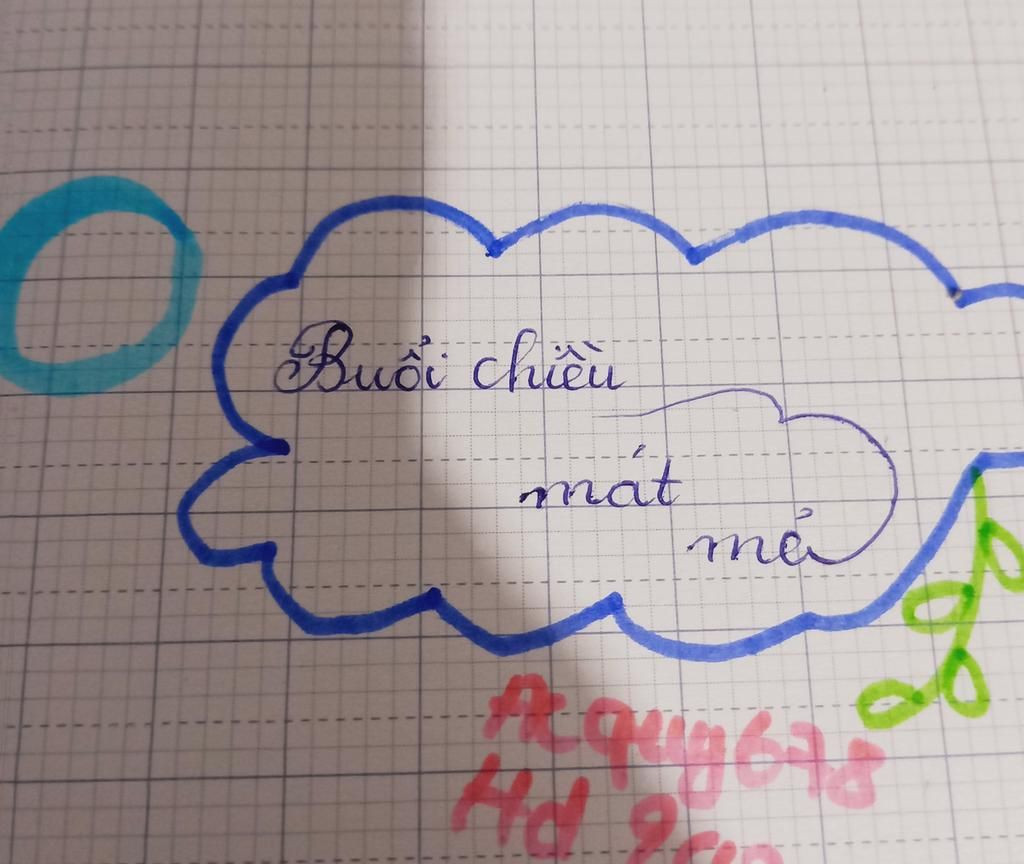 Buổi chiều
mát
mẻ
At quy678
Hd